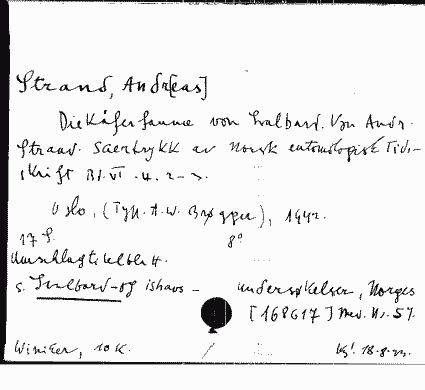 Strand, Andr[eas]
Die Käferfauna von Svalbard. Von Andr.
Strand. Saertrykk av Norsk entomologisk Tids-
skrift Bd. VI. 4. 2-3.
Oslo, (Typ. A. W. Brøgger), 1942.
17 S. 8°
Umschlagtitelbl.
s. Svalbard-og ishavs-undersøkelser, Norges
[168617] Med. Nr. 51.
Winiker, 10 K. / 18.8.